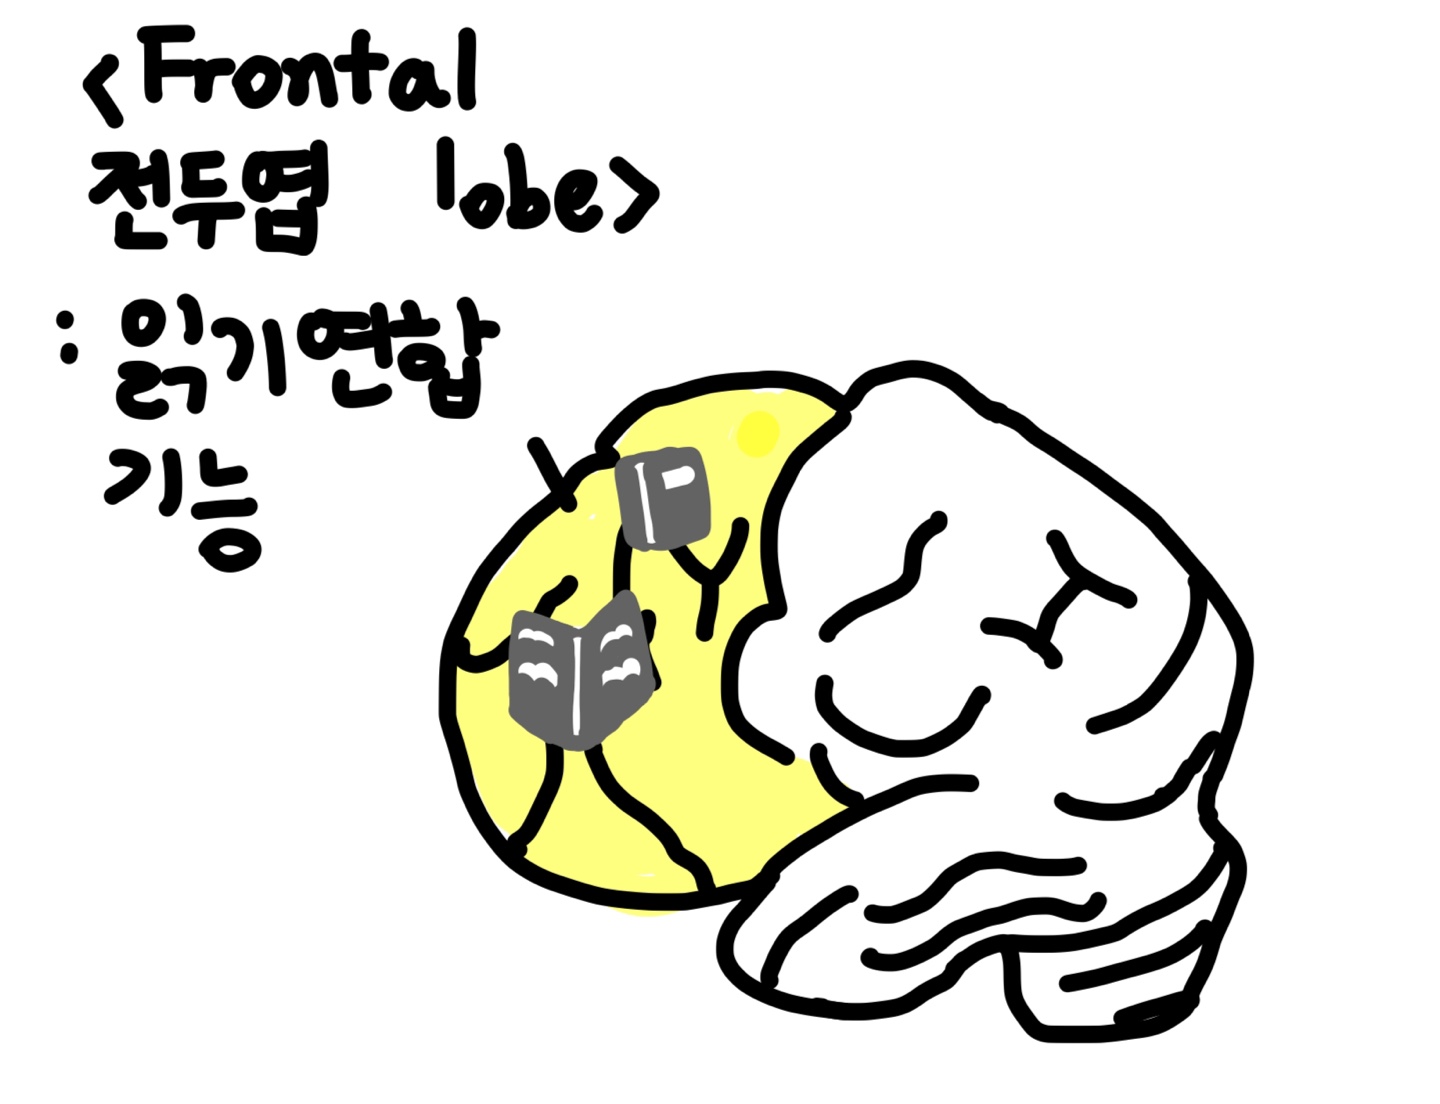 <Frontal
전두엽 lobe>
: 읽기연합
기능